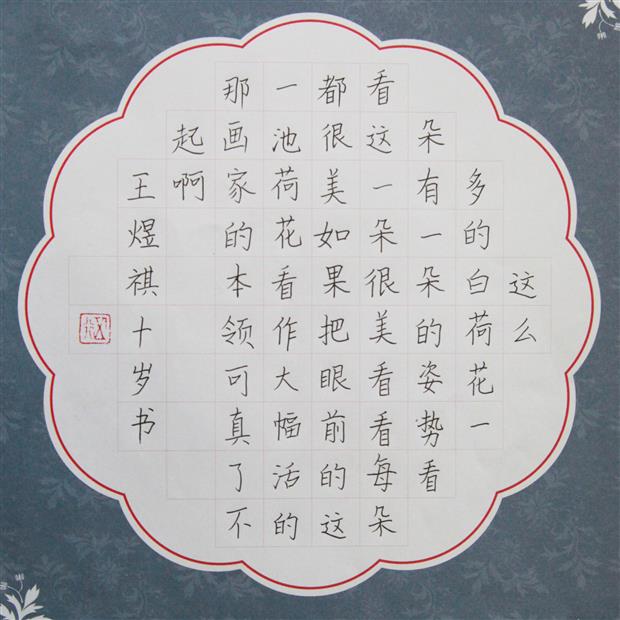 这么
多的白荷花一
朵有一朵的姿势看
看这一朵很美看看每朵
都很美如果把眼前的这
一池荷花看作大幅活的
那画家的本领可真了不
起啊
王煜祺十岁书